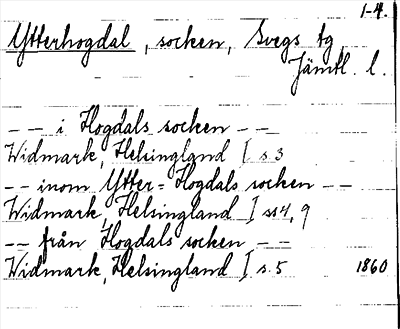 1-4.
Ytterhogdal, socken, Svegs tg
Jämtl. l.
-- i Hogdals socken --
Widmark, Helsingland I s 3
-- inom Ytter=Hogdals socken --
Widmark, Helsingland I ss 4, 9
-- från Hogdals socken --
Widmark, Helsingland I s. 5 1860